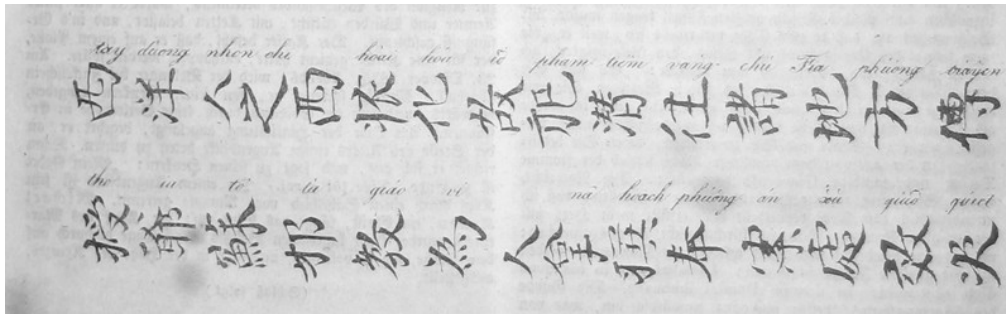 tay dương nhơn chi hoai hoa cố pham tiềm vang chư Tra phương truyen
西洋人之西化故犯潜往諸地方傳
thọ ia tô tà giáo vi nã hoach phương án xử giảo quiet
授爺蘇邪教為人拿奉案處效次